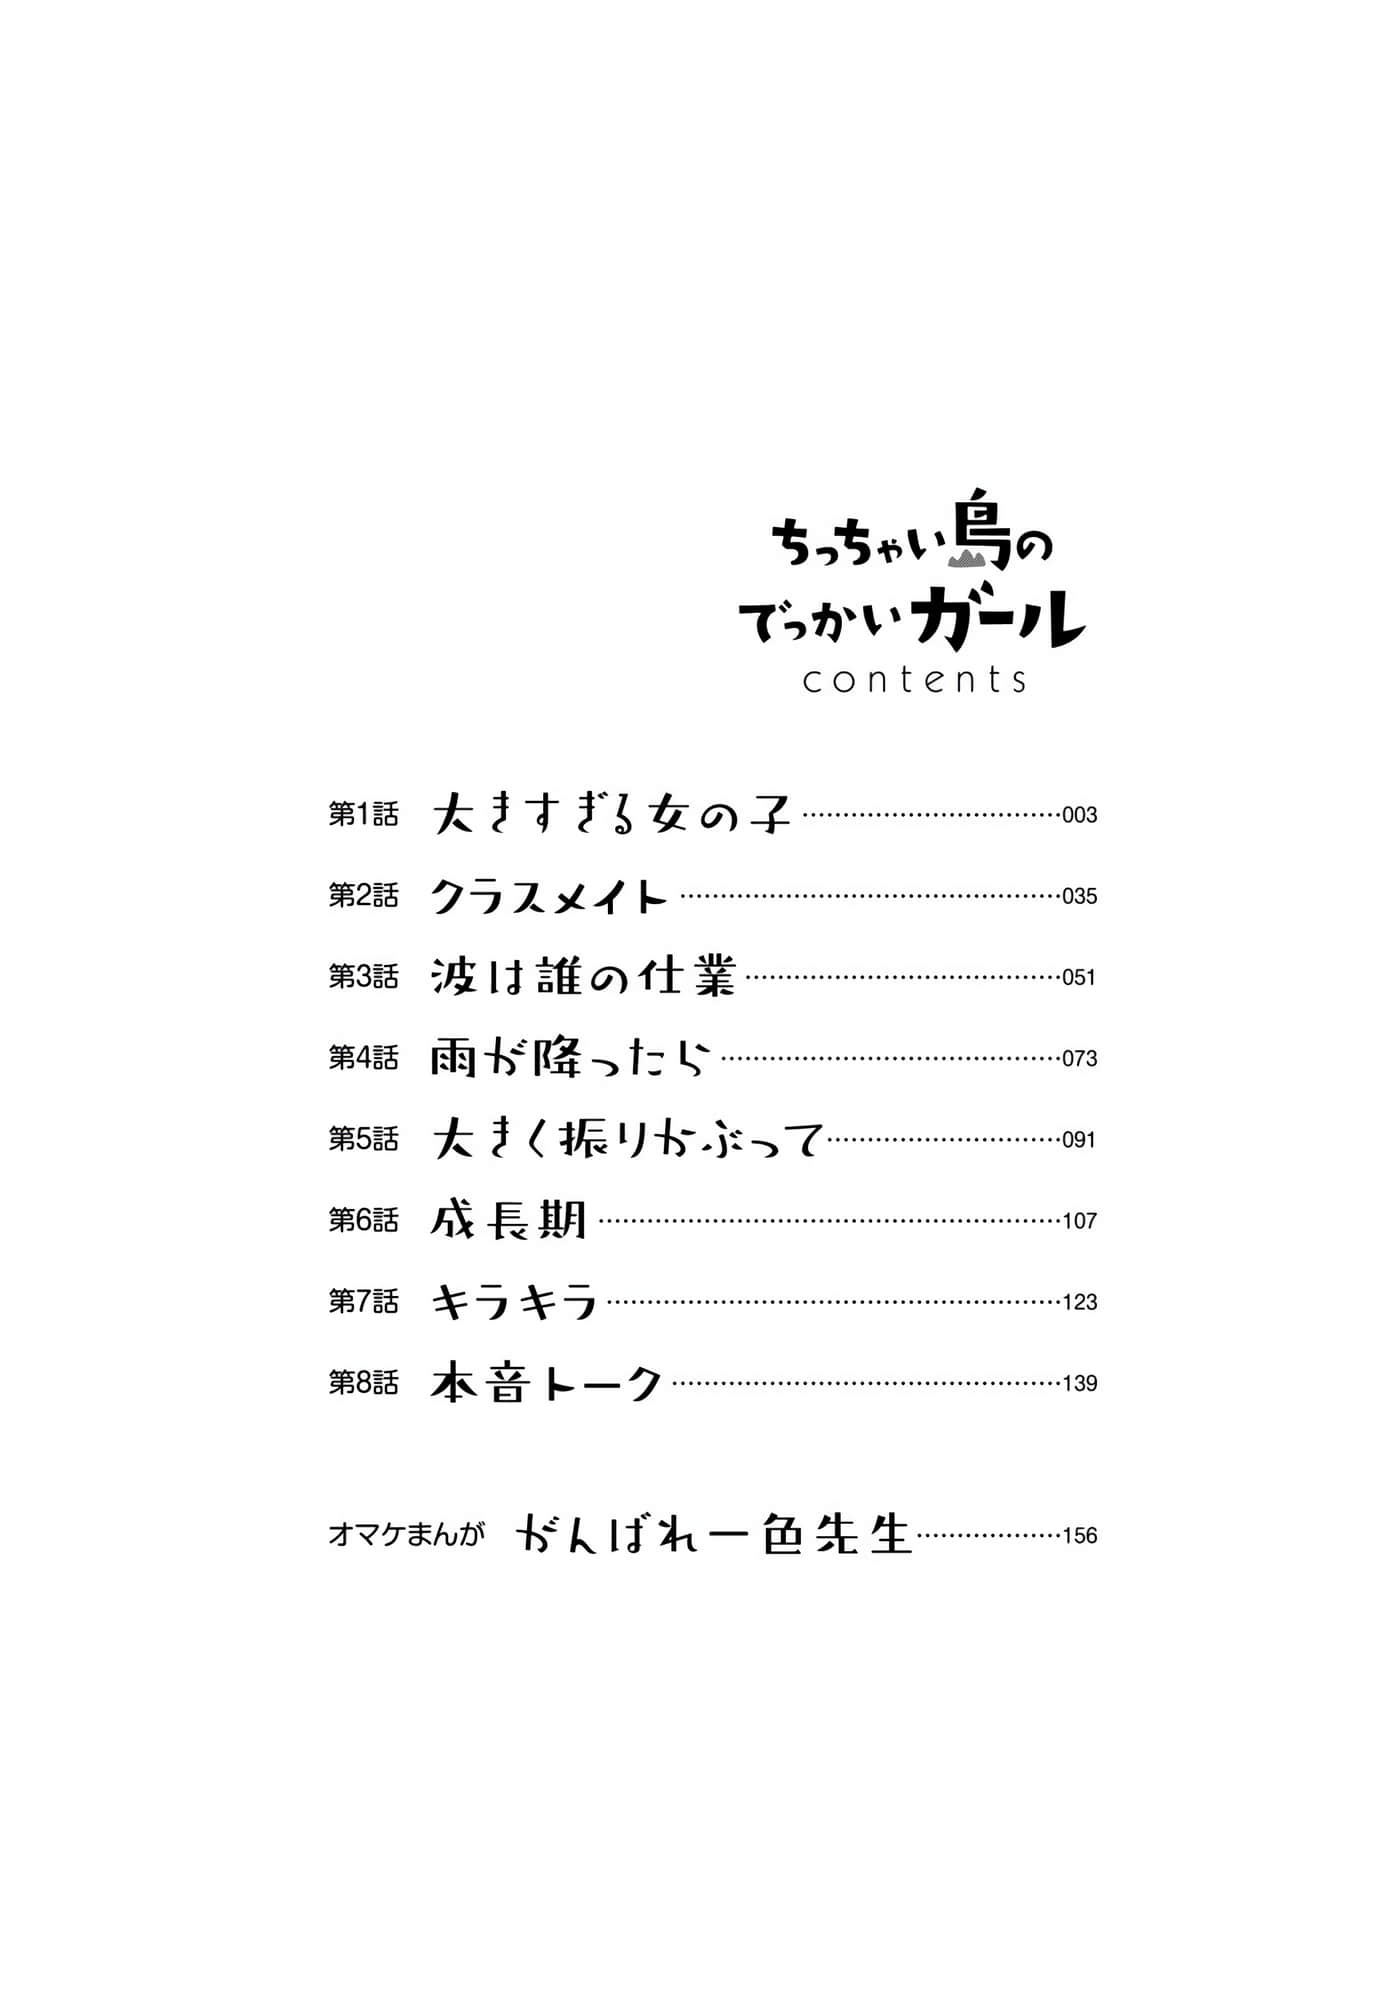 ちっちゃい島の
でっかいガール
contents
第1話 大きすぎる女の子……………………………003
第2話 クラスメイト……………………………035
第3話 波は誰の仕業……………………………051
第4話 雨が降ったら……………………………073
第5話 大きく振りかぶって……………………………091
第6話 成長期……………………………107
第7話 キラキラ……………………………123
第8話 本音トーク……………………………139
オマケまんが がんばれ一色先生………………156